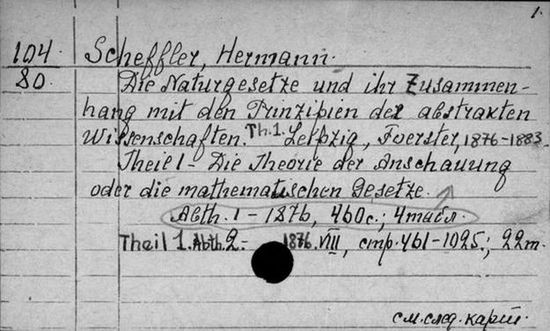 1.
104. Scheffler, Hermann.
80. Die Naturgesetze und ihr Zusammen-
hang mit den Prinzipien der abstrakten
Wissenschaften. Th.1. Leipzig, Foerster, 1876-1883.
Theil 1 - Die Theorie der Anschauung
oder die mathematischen Gesetze.
Abth. 1 - 1876, 460 с.; 4 табл.
Theil 1. Abth. 2. - 1876. VIII, стр. 461-1025.; 22 т.
см. след. карт.